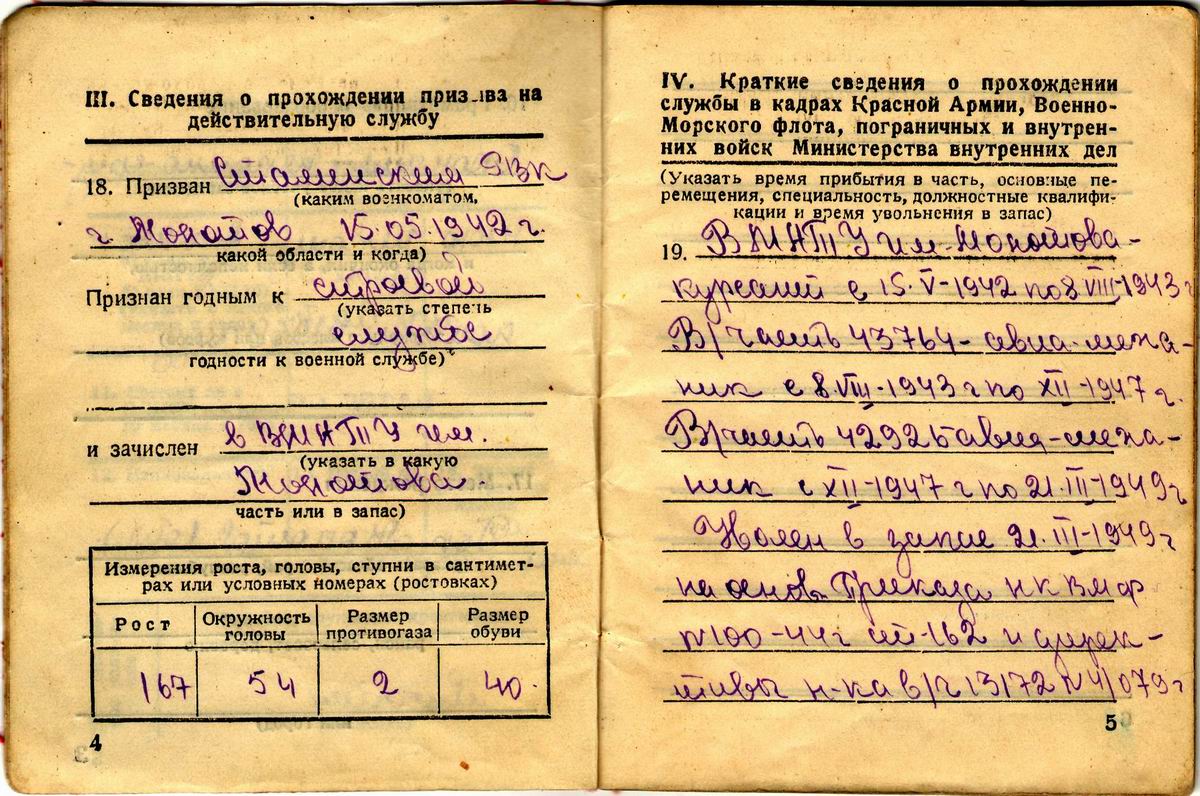 III. Сведения о прохождении призыва на
действительную службу
18. Призван Сталинским РВК
(каким военкоматом,
г. Молотов 15.05.1942 г.
какой области и когда)
Признан годным к строевой
(указать степень
службе
годности к военной службе)
и зачислен в ВМАТУ им.
(указать в какую
Молотова.
часть или в запас)
Измерения роста, головы, ступни в сантимет-
рах или условных номерах (ростовках)
Рост Окружность головы Размер противогаза Размер обуви
167 54 2 40.
4
IV. Краткие сведения о прохождении
службы в кадрах Красной Армии, Военно-
Морского флота, пограничных и внутрен-
них войск Министерства внутренних дел
(Указать время прибытия в часть, основные пе-
ремещения, специальность, должностные квалифи-
кации и время увольнения в запас)
19. ВМАТУ им. Молотова-
курсант с 15.V-1942 по 8 VIII-1943 г
В/часть 43764- авиа-меха-
ник с 8.VIII-1943 г по XII-1947 г.
В/часть 42925 авиа-меха-
ник с XII-1947 г по 21.III-1949 г
Уволен в запас 21.III-1949 г
на основ. Приказа НКВМФ
N 100-44 г ст-162 и дирек-
тивы н-ка в/ч 13172 N 4/079 г
5